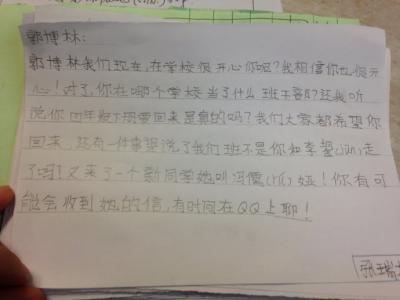 郭博林:
郭博林我们现在,在学校很开心你呢?我相信你也很开
心!对了,你在哪个学校当了什么班干部?还我听
说你四年级下册要回来是真的吗?我们大家都希望你
回来,还有一件事望说了我们班不是你和李堃(jūn)走
了吗!又来了一个新同学她叫冯儒(rú)娅!你有可
能会收到她的信,有时间在QQ上聊!